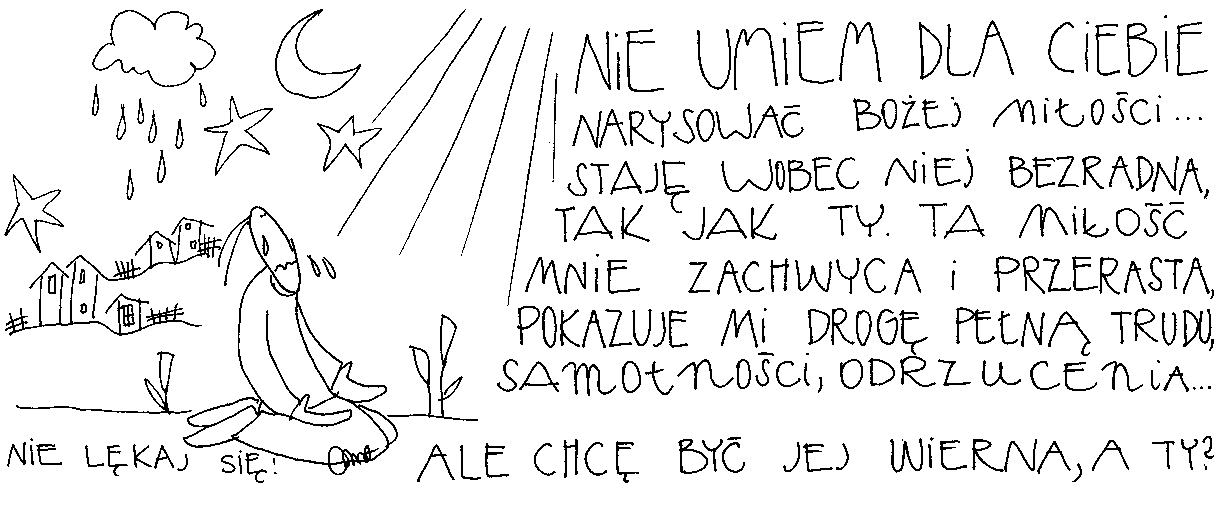 NiE UMiEM DLA CiEBiE
NARYSOWAĆ BOŻEj MiŁOŚCi...
STAJĘ WOBEC NiEj BEZRADNA,
TAK JAK TY. TA MiŁOŚĆ
MNiE ZACHWYCA i PRZERASTA,
POKAZUJE Mi DROGĘ PEŁNĄ TRUDU,
SAMOTNOŚCi, ODRZUCENiA...
ALE CHCĘ BYĆ JEj WiERNA, A TY?
NiE LĘKAj SiĘ!